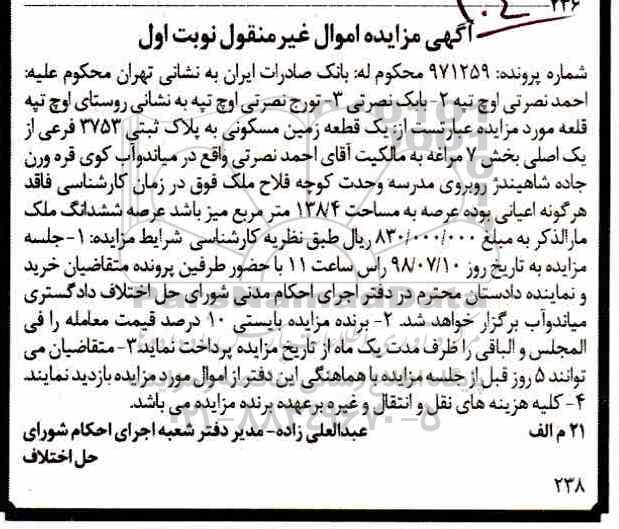 ۲۳۶
۱۰۴
آگهی مزایده اموال غیرمنقول نوبت اول
شماره پرونده: ۹۷۱۲۵۹ محکوم له: بانک صادرات ایران به نشانی تهران محکوم علیه:
احمد نصرتی اوچ تپه ۲- بابک نصرتی ۳- تورج نصرتی اوچ تپه به نشانی روستای اوچ تپه
قلعه مورد مزایده عبارتست از: یک قطعه زمین مسکونی به پلاک ثبتی ۳۷۵۳ فرعی از
یک اصلی بخش ۷ مراغه به مالکیت آقای احمد نصرتی واقع در میاندوآب کوی قره ورن
جاده شاهیندژ روبروی مدرسه وحدت کوچه فلاح ملک فوق در زمان کارشناسی فاقد
هرگونه اعیانی بوده عرصه به مساحت ۱۳۸/۴ متر مربع میز باشد عرصه ششدانگ ملک
مارالذکر به مبلغ ۸۳۰/۰۰۰/۰۰۰ ریال طبق نظریه کارشناسی شرایط مزایده: ۱-جلسه
مزایده به تاریخ روز ۹۸/۰۷/۱۰ راس ساعت ۱۱ با حضور طرفین پرونده متقاضیان خرید
و نماینده دادستان محترم در دفتر اجرای احکام مدنی شورای حل اختلاف دادگستری
میاندوآب برگزار خواهد شد. ۲- برنده مزایده بایستی ۱۰ درصد قیمت معامله را فی
المجلس و الباقی را ظرف مدت یک ماه از تاریخ مزایده پرداخت نماید۳- متقاضیان می
توانند ۵ روز قبل از جلسه مزایده با هماهنگی این دفتر از اموال مورد مزایده بازدید نمایند.
۴- کلیه هزینه های نقل و انتقال و غیره برعهده برنده مزایده می باشد.
۲۱ م الف عبدالعلی زاده- مدیر دفتر شعبه اجرای احکام شورای
حل اختلاف
۲۳۸
۰۲۱-۸۸۳۴۹۶۷۰-۵